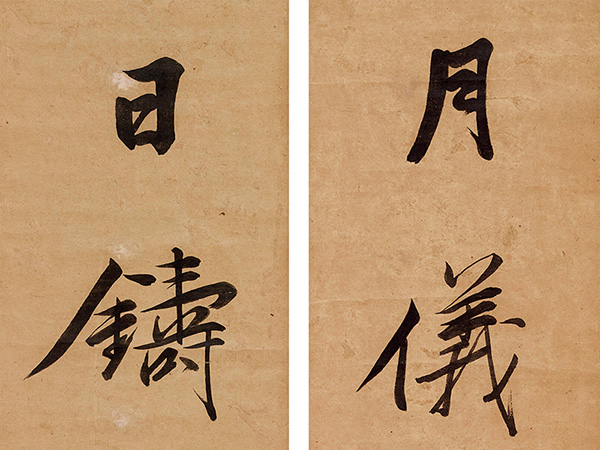 月儀
日鑄